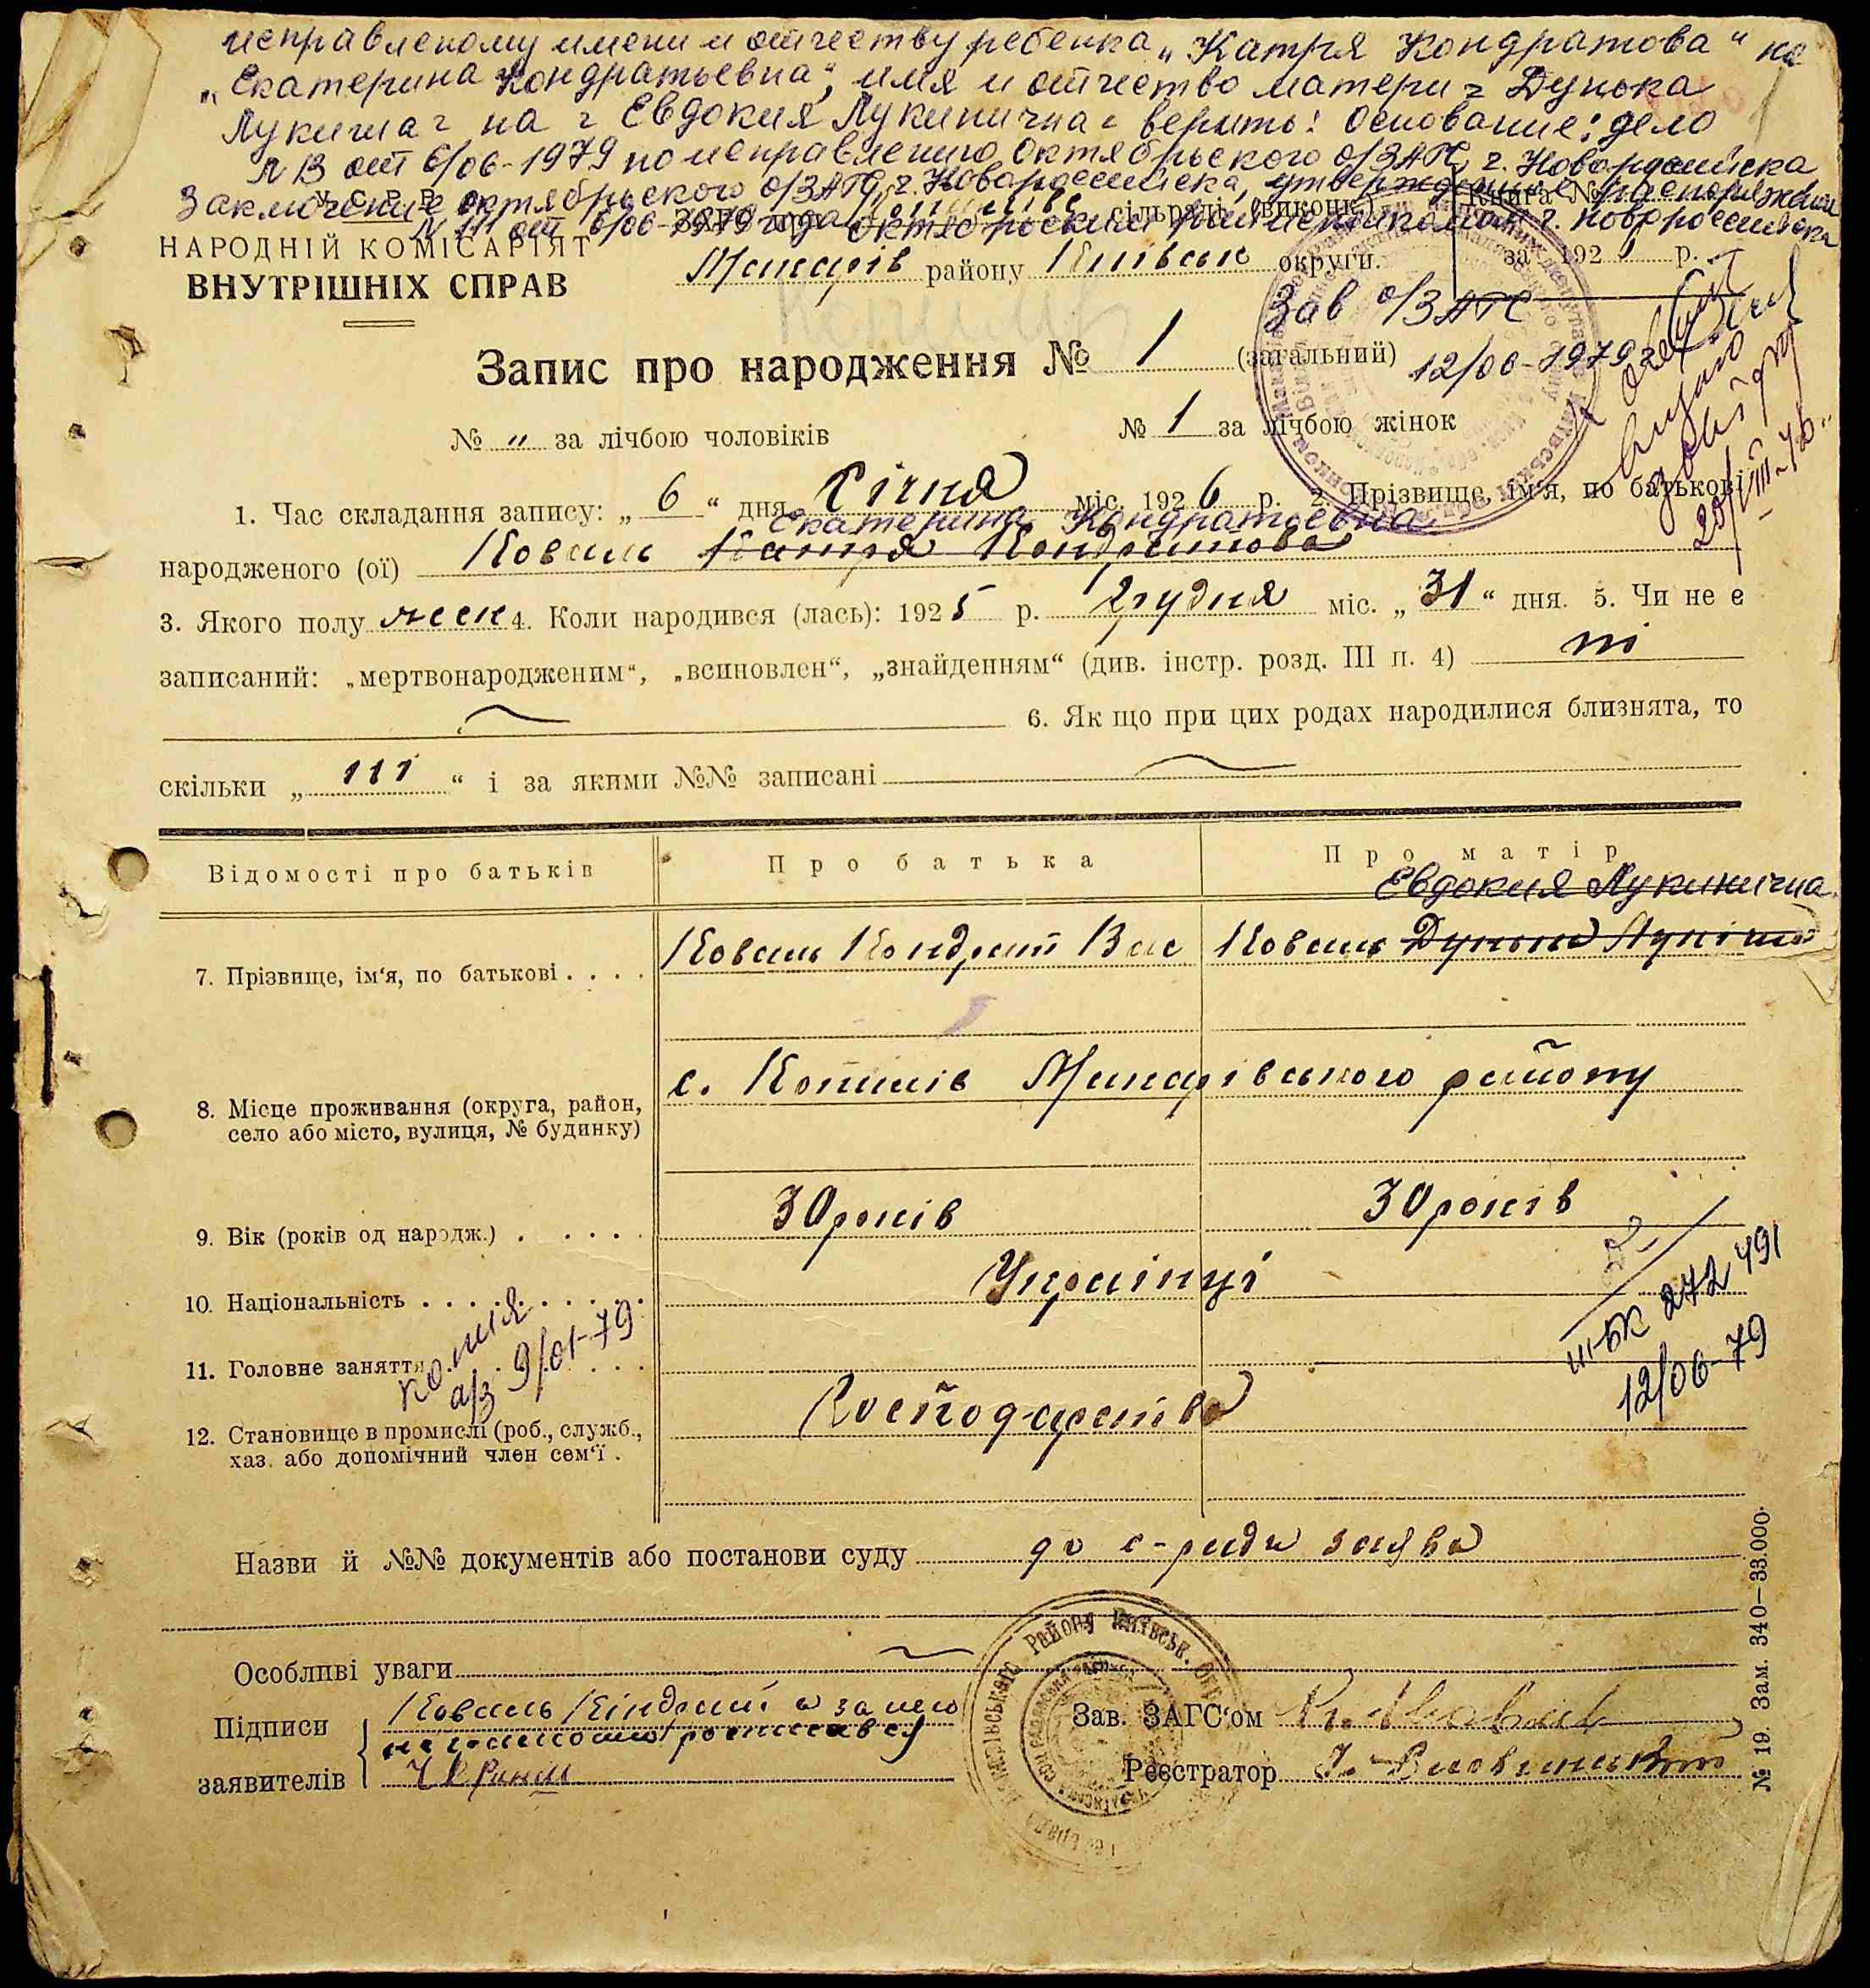 исправленому имени и отчеству ребенка „Катря Кондратова“ на
„Екатерина Кондратьевна“, имя и отчество матери „Дунька
Лукишна“ на „Евдокия Лукинична“ верить! Основание: дело
№ 13 от 6/06-1979 по исправлению Октябрьского о/ЗАГС г. Новороссийска
Заключение октябрьского о/ЗАГС г. Новороссийска, утвержденное распоряжением
У. С. Р. Р.
ЗАГС при сільраді (виконк.) Книга №
от 6/06-1979 года октябрьским г. Новороссийска
НАРОДНІЙ КОМІСАРІЯТ
ВНУТРІШНІХ СПРАВ
Макарів району Київськ округи. за 192 р.
Зав о/ЗАГС
Запис про народження № 1 (загальний)
12/06-1979г
№ „ за лічбою чоловіків № 1 за лічбою жінок
1. Час складання запису: „ 6 “ дня Січня міс. 1926 р. 2. Прізвище, ім'я, по батькові
Екатерина Кондратьевна
народженого (ої) Коваль Катря Кондратова
3. Якого полу жен 4. Коли народився (лась): 1925 р. Грудня міс. „ 31 “ дня. 5. Чи не є
записаний: „мертвонародженим“, „всиновлен“, „знайденням“ (див. інстр. розд. III п. 4) ні
6. Як що при цих родах народилися близнята, то
скільки „ “ і за якими №№ записані
Відомості про батьків Про батька Про матір
Евдокия Лукинична
7. Прізвище, ім'я, по батькові . . . . Коваль Кондрат Вас Коваль Дунька
8. Місце проживання (округа, район,
село або місто, вулиця, № будинку)
с. Копилів Макарівського району
9. Вік (років од народж.) . . . . . 30 років 30 років
10. Національність . . . . . . . . . Українці
III-БК 272491
12/06-79
копия
а/з 9/01-79
11. Головне заняття . . . .
12. Становище в промислі (роб., служб.,
хаз. або допомічний член сем'ї .
Господарство
Назви й №№ документів або постанови суду до с-ради заява
Особливі уваги
Підписи Коваль Кіндрат а за него
неграмотного росписався
заявителів
Зав. ЗАГС'ом
Реєстратор
№ 19. Зам. 340—33.000.